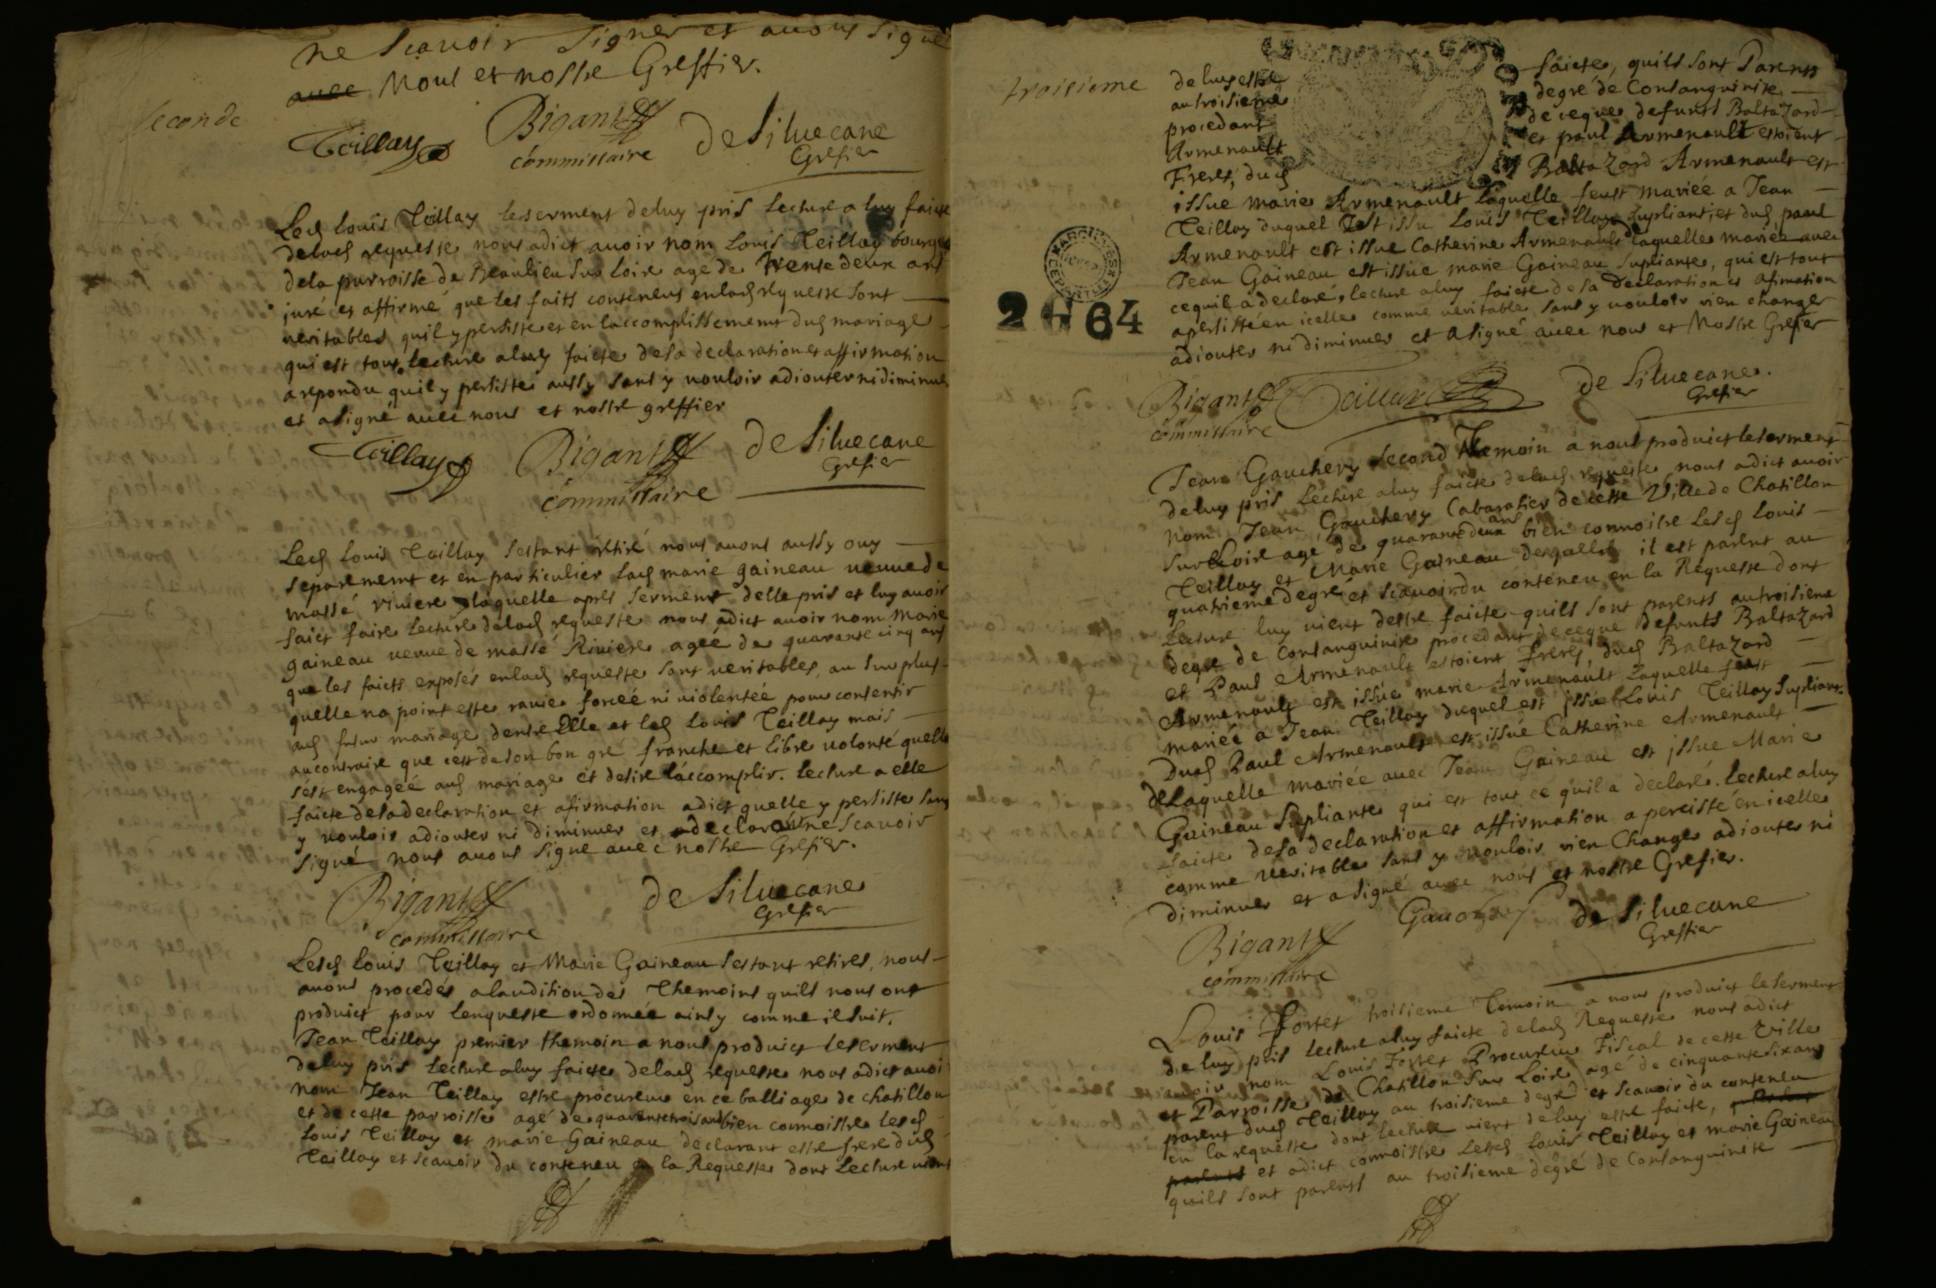 ne Scauoir Signer et auons Signé
auec Nous et nostre Greffier.
Seconde
Teillay Bigant De Siluecane
commissaire Grefier
Led Louis Teillay le serment de luy pris Lecture a luy faicte
delad requeste nous a dict auoir nom Louis Teillay bourgeois
de la parroisse de Beaulieu Sur Loire age de trente deux ans
juré et affirmé que les faits contenus en lad requeste sont
veritables quil y persiste et en laccomplissement dud mariage
qui est tout Lecture a luy faicte de sa declaration et affirmation
a repondu quil y persiste aussy sans y vouloir adiouter ni diminuer
et a signé auec nous et nostre greffier
Teillay Bigant De Siluecane
commissaire Grefier
Led Louis Teillay sestant retiré nous auons aussy ouy
separement et en particulier lad marie gaineau veuue de
massé riuiere laquelle apres serment delle pris et luy auoir
faict faire Lecture delad requeste nous a dict auoir nom Marie
gaineau veuue de massé Riuiere agée de quarante cinq ans
que les faicts exposés en lad requeste sont veritables, au surplus
quelle na point estée rauie forcée ni violentée pour consentir
aud futur mariage dentre Elle et led Louis Teillay mais
au contraire que cest de son bon gré franche et libre volonté quelle
sest engagée aud mariage et desire laccomplir. Lecture a elle
faicte de sa declaration et afirmation a dict quelle y persiste sans
y vouloir adiouter ni diminuer et a declaré ne Scauoir
Signé nous auons Signé auec nostre Grefier.
Bigant de Siluecane
commissaire Grefier
Lesd Louis Teillay et Marie Gaineau sestant retirés, nous
auons procedés a laudition des Themoins quils nous ont
produict pour lenqueste ordonnée ainsy comme il suit.
Jean Teillay premier themoin a nous produict le serment
de luy pris Lecture a luy faicte delad requeste nous a dict auoir
nom Jean Teillay estre procureur en ce balliage de chatillon
et de cette parroisse agé de quarente trois ans bien connoistre lesd
Louis Teillay et marie Gaineau declarant estre frere dud
Teillay et scauoir du conteneu en la Requeste dont Lecture vient
troisieme
de luy estre faicte, quils sont Parents
au troisieme degré de Consanguinité
procedant de ceque defunts Baltazard
Armenault et paul Armenault estoient
Freres, dud Baltazard Armenault est
issue marie Armenault Laquelle feust mariée a Jean
Teillay duquel Est issu Louis Teillay supliant, et dud paul
Armenault est issue Catherine Armenault laquelle mariée auec
Jean Gaineau est issue marie Gaineau supliante, qui est tout
ce quil a declaré, lecture a luy faicte de sa declaration et afirmation
a persisté en icelle comme veritable sans y vouloir rien changer
adiouter ni diminuer et a signé auec nous et Nostre Grefier
2464
Bigant Teillay de Siluecane.
commissaire Grefier
Jean Gauchery second Temoin a nous produict le serment
de luy pris Lecture a luy faicte delad requeste nous a dict auoir
nom Jean Gauchery Cabaratier de cette Ville de Chatillon
sur Loire age de quarante deux ans bien connoistre Lesd Louis
Teillay et Marie Gaineau desquelles il est parent au
quatrieme degré et scauoir du conteneu en la Requeste dont
Lecture luy vient destre faicte quils sont parents au troisieme
degre de consanguinité procedant de ceque defunts Baltazard
et Paul Armenault estoient Freres, dud Baltazard
Armenault est issue marie Armenault Laquelle feust
mariée a Jean Teillay duquel est issue Louis Teillay Supliant.
Dud Paul Armenault est issue Catherine Armenault
de Laquelle mariée auec Jean Gaineau est jssue Marie
Gaineau Supliante qui est tout ce quil a declaré. Lecture a luy
faicte de sa declaration et affirmation a percisté en icelle
comme veritable sans y vouloir rien Changer adiouter ni
diminuer et a signé auec nous et nostre Grefier.
Bigant Gauchery de Siluecane
commissaire Greffier
Louis Fortet troisieme Temoin a nous produict le serment
de luy pris lecture a luy faicte delad Requeste nous a dict
auoir nom Louis Fortet Procureur Fiscal de cette Ville
et Parroisse de Chatillon Sur Loire agé de cinquante six ans
parent dud Teillay au troisieme degré et scauoir du conteneu
en la requeste dont lecture vient de luy estre faicte,
parents et a dict connoistre Lesd Louis Teillay et marie Gaineau
quils sont parents au troisieme degré de Consanguinité